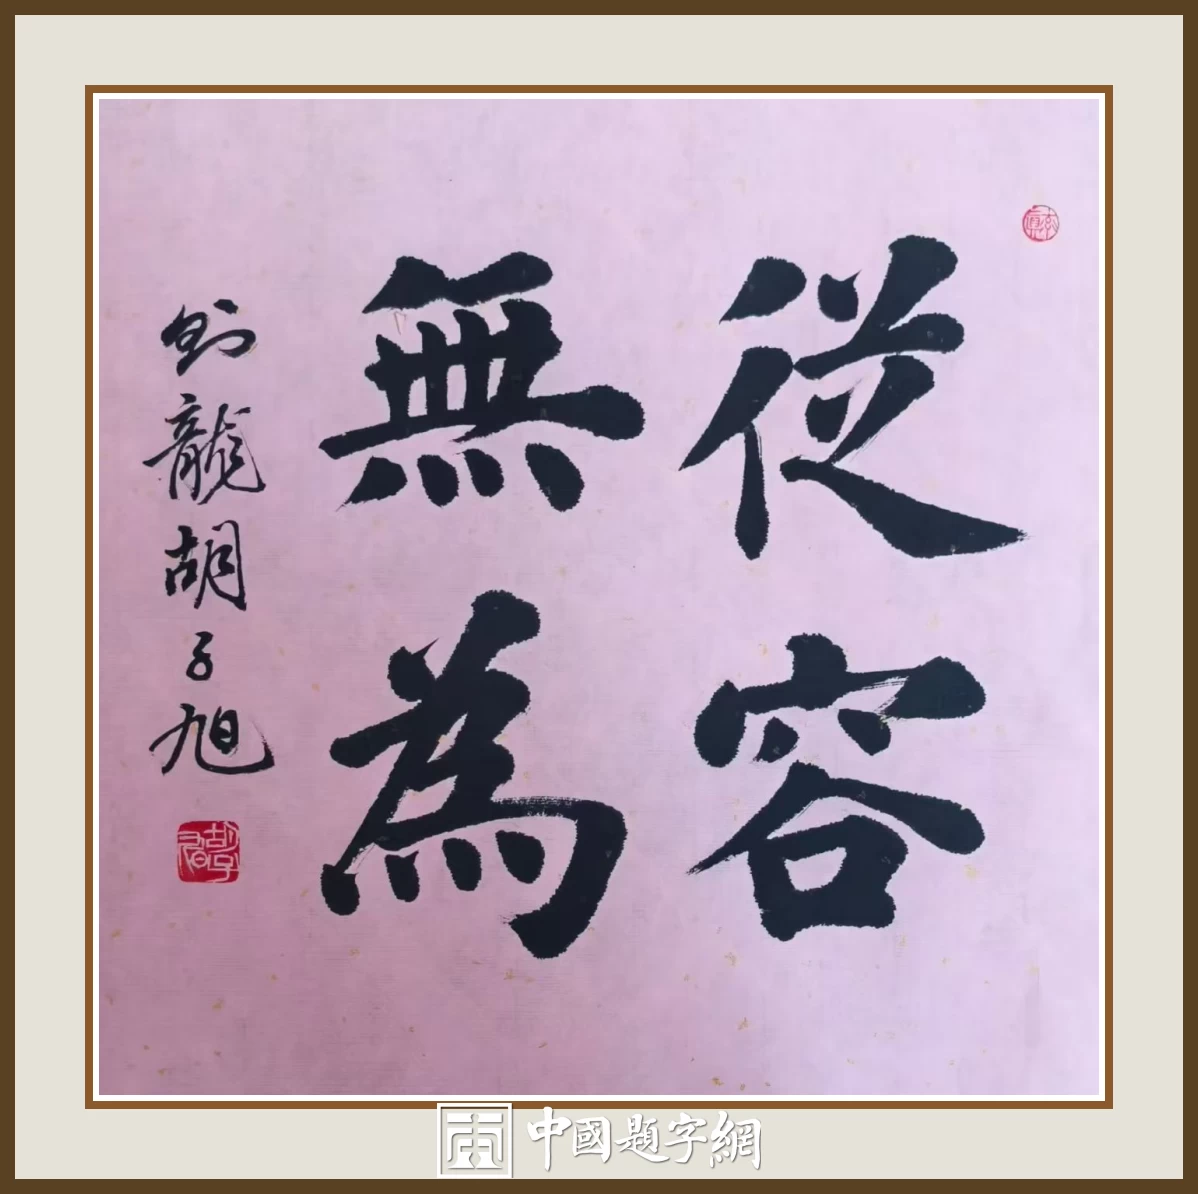 從容
無為
劉龍胡子旭
中國題字網